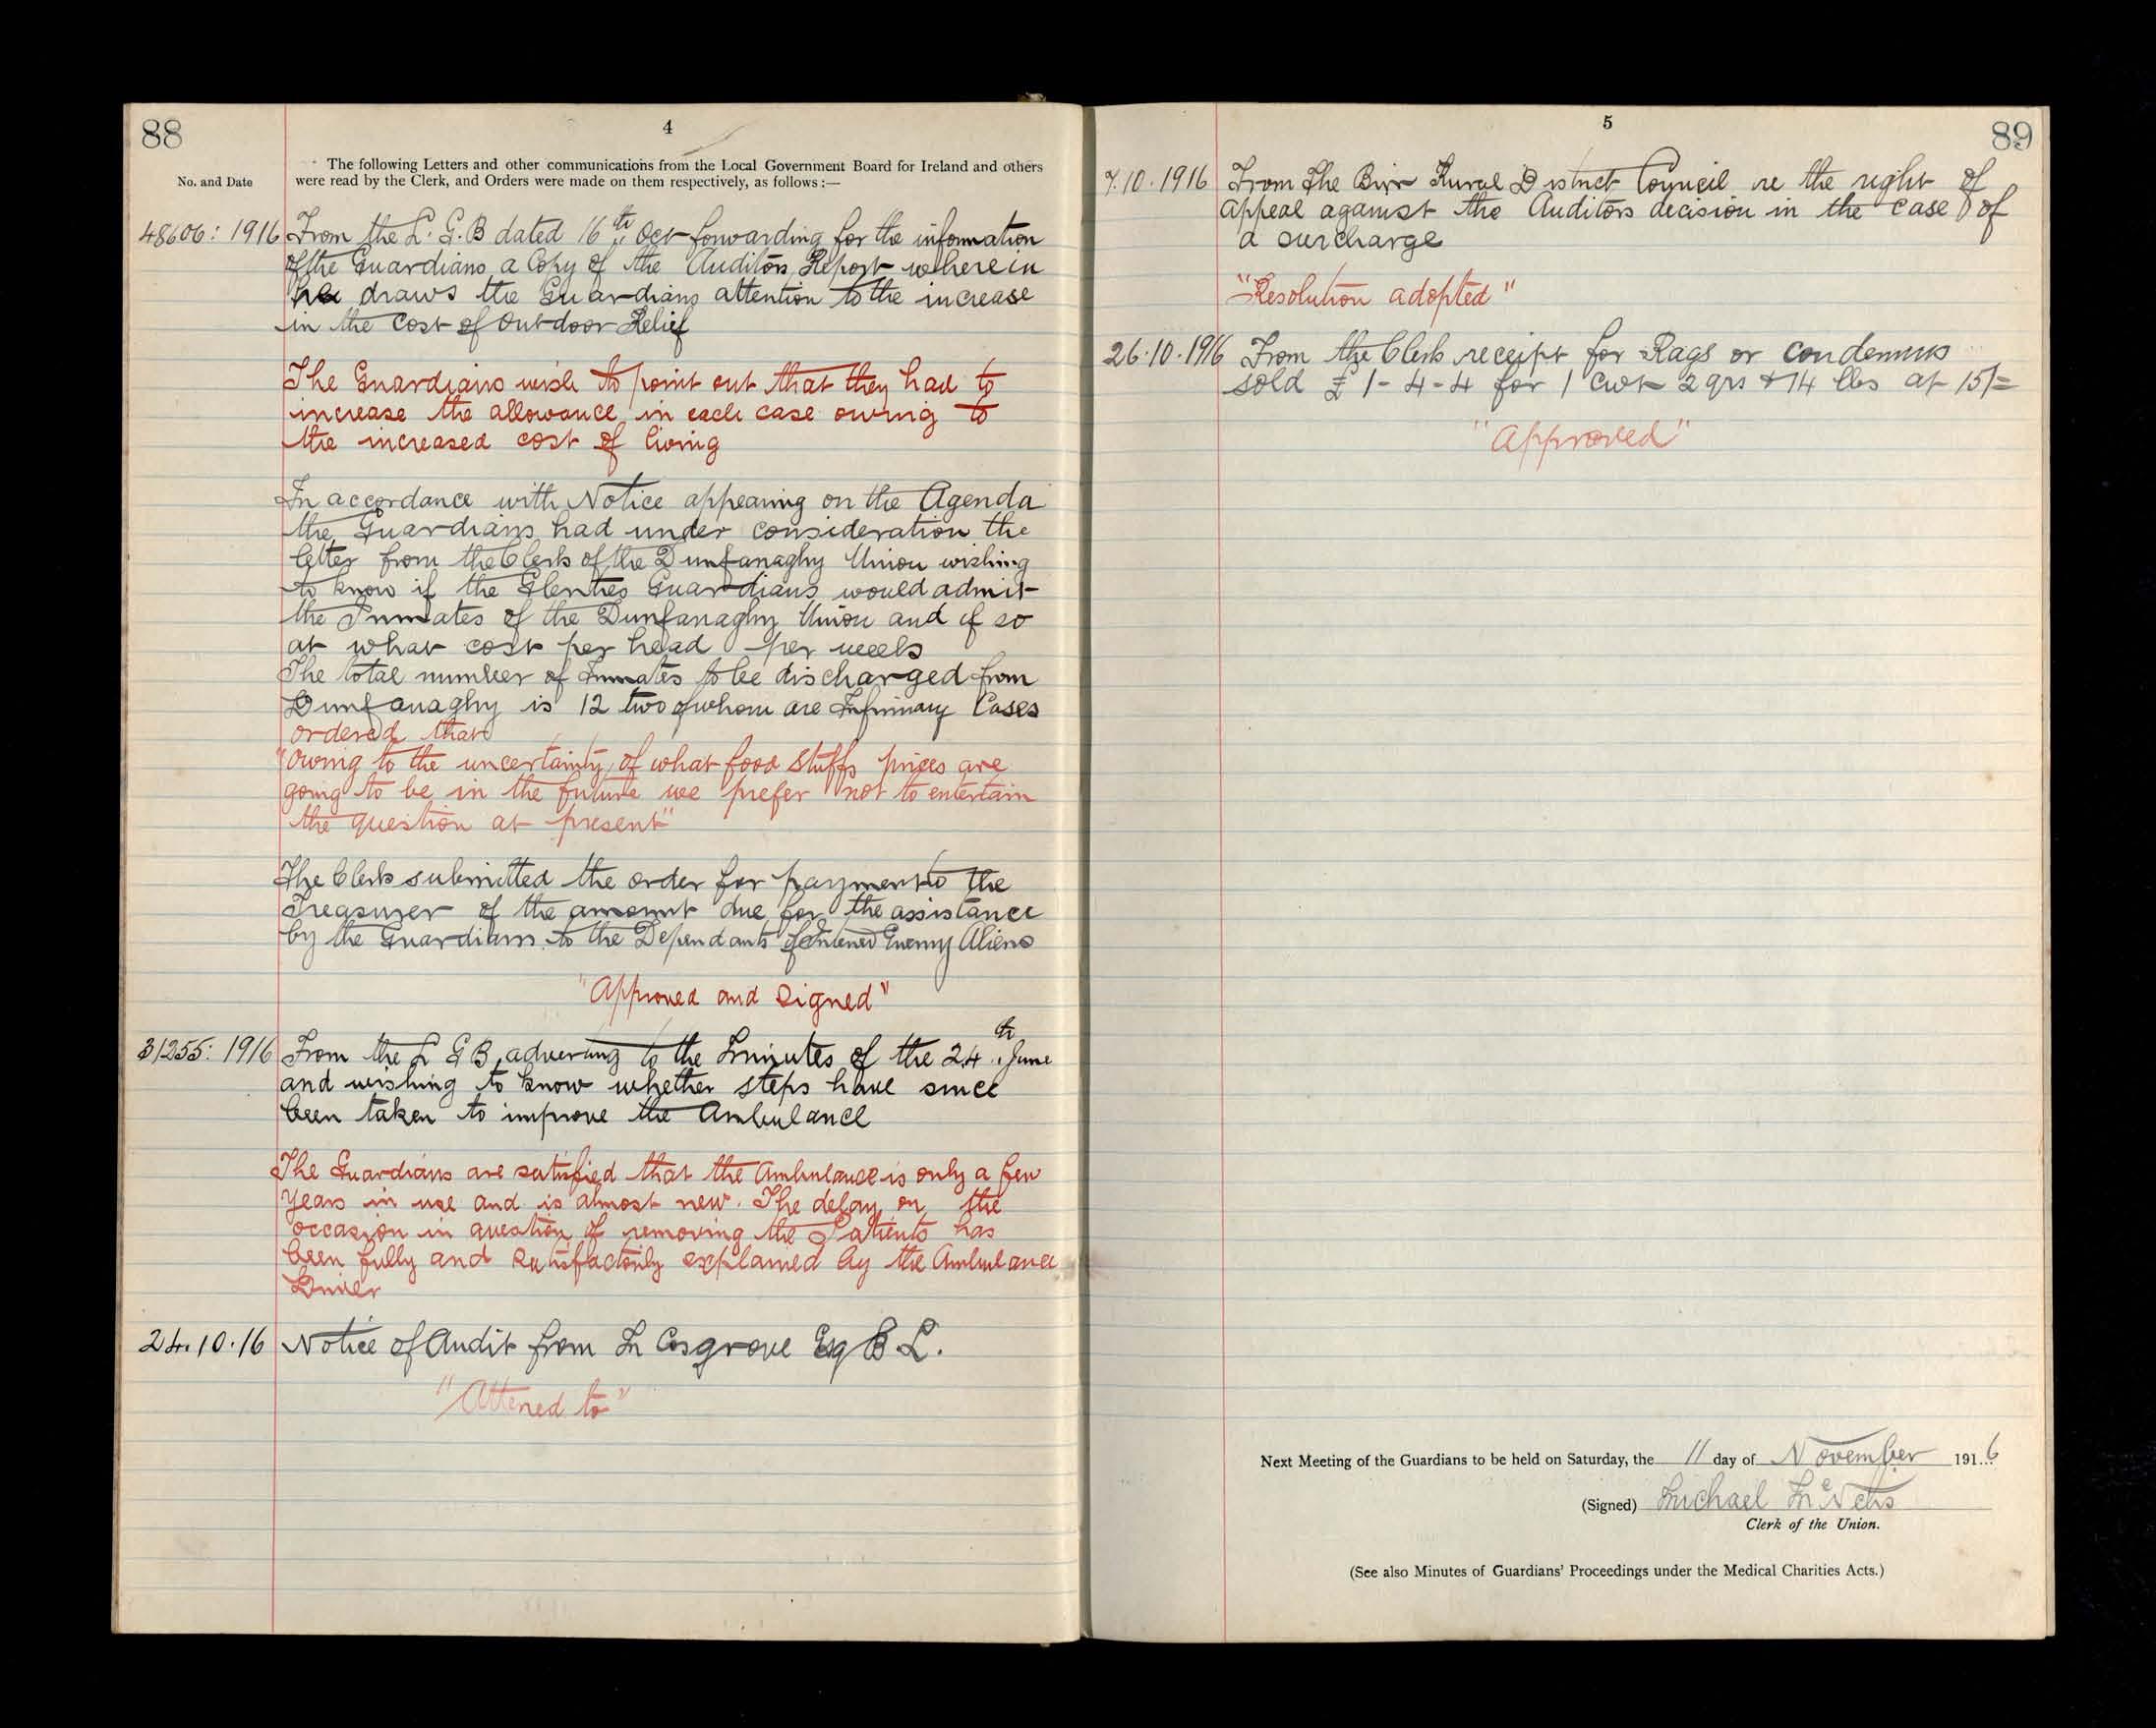 88
4
The following Letters and other communications from the Local Government Board for Ireland and others
No. and Date
were read by the Clerk, and Orders were made on them respectively, as follows :—
48606: 1916 From the L. G. B dated 16th Oct forwarding for the information
of the Guardians a Copy of the Auditors Report wherein
he draws the Guardians attention to the increase
in the Cost of Outdoor Relief
The Guardians wish to point out that they had to
increase the allowance in each case owing to
the increased cost of living
In accordance with Notice appearing on the Agenda
the Guardians had under consideration the
letter from the Clerk of the Dunfanaghy Union wishing
to know if the Glenties Guardians would admit
the Inmates of the Dunfanaghy Union and if so
at what cost per head per week
The total number of Inmates to be discharged from
Dunfanaghy is 12 two of whom are Infirmary Cases
ordered that
"Owing to the uncertainty of what food stuffs prices are
going to be in the future we prefer not to entertain
the question at present"
The Clerk submitted the order for payment to the
Treasurer of the amount due for the assistance
by the Guardians to the Dependants of Enemy Aliens
"Approved and Signed"
31255: 1916 From the L G B adverting to the Minutes of the 24th June
and wishing to know whether steps have since
been taken to improve the Ambulance
The Guardians are satisfied that the Ambulance is only a few
years in use and is almost new. The delay on the
occasion in question of removing the Patients has
been fully and satisfactorily explained by the Ambulance
Driver
24.10.16 Notice of Audit from Cosgrove Esq B L.
"Attened to"
5
89
7.10.1916 From the Birr Rural District Council re the right of
appeal against the Auditors decision in the case of
a surcharge
"Resolution adopted"
26.10.1916 From the Clerk receipt for Rags or condemns
sold £1-4-4 for 1 Cwt 2 qrs & 14 lbs at 15/=
"Approved"
Next Meeting of the Guardians to be held on Saturday, the 11 day of November 1916
(Signed) Michael
Clerk of the Union.
(See also Minutes of Guardians' Proceedings under the Medical Charities Acts.)